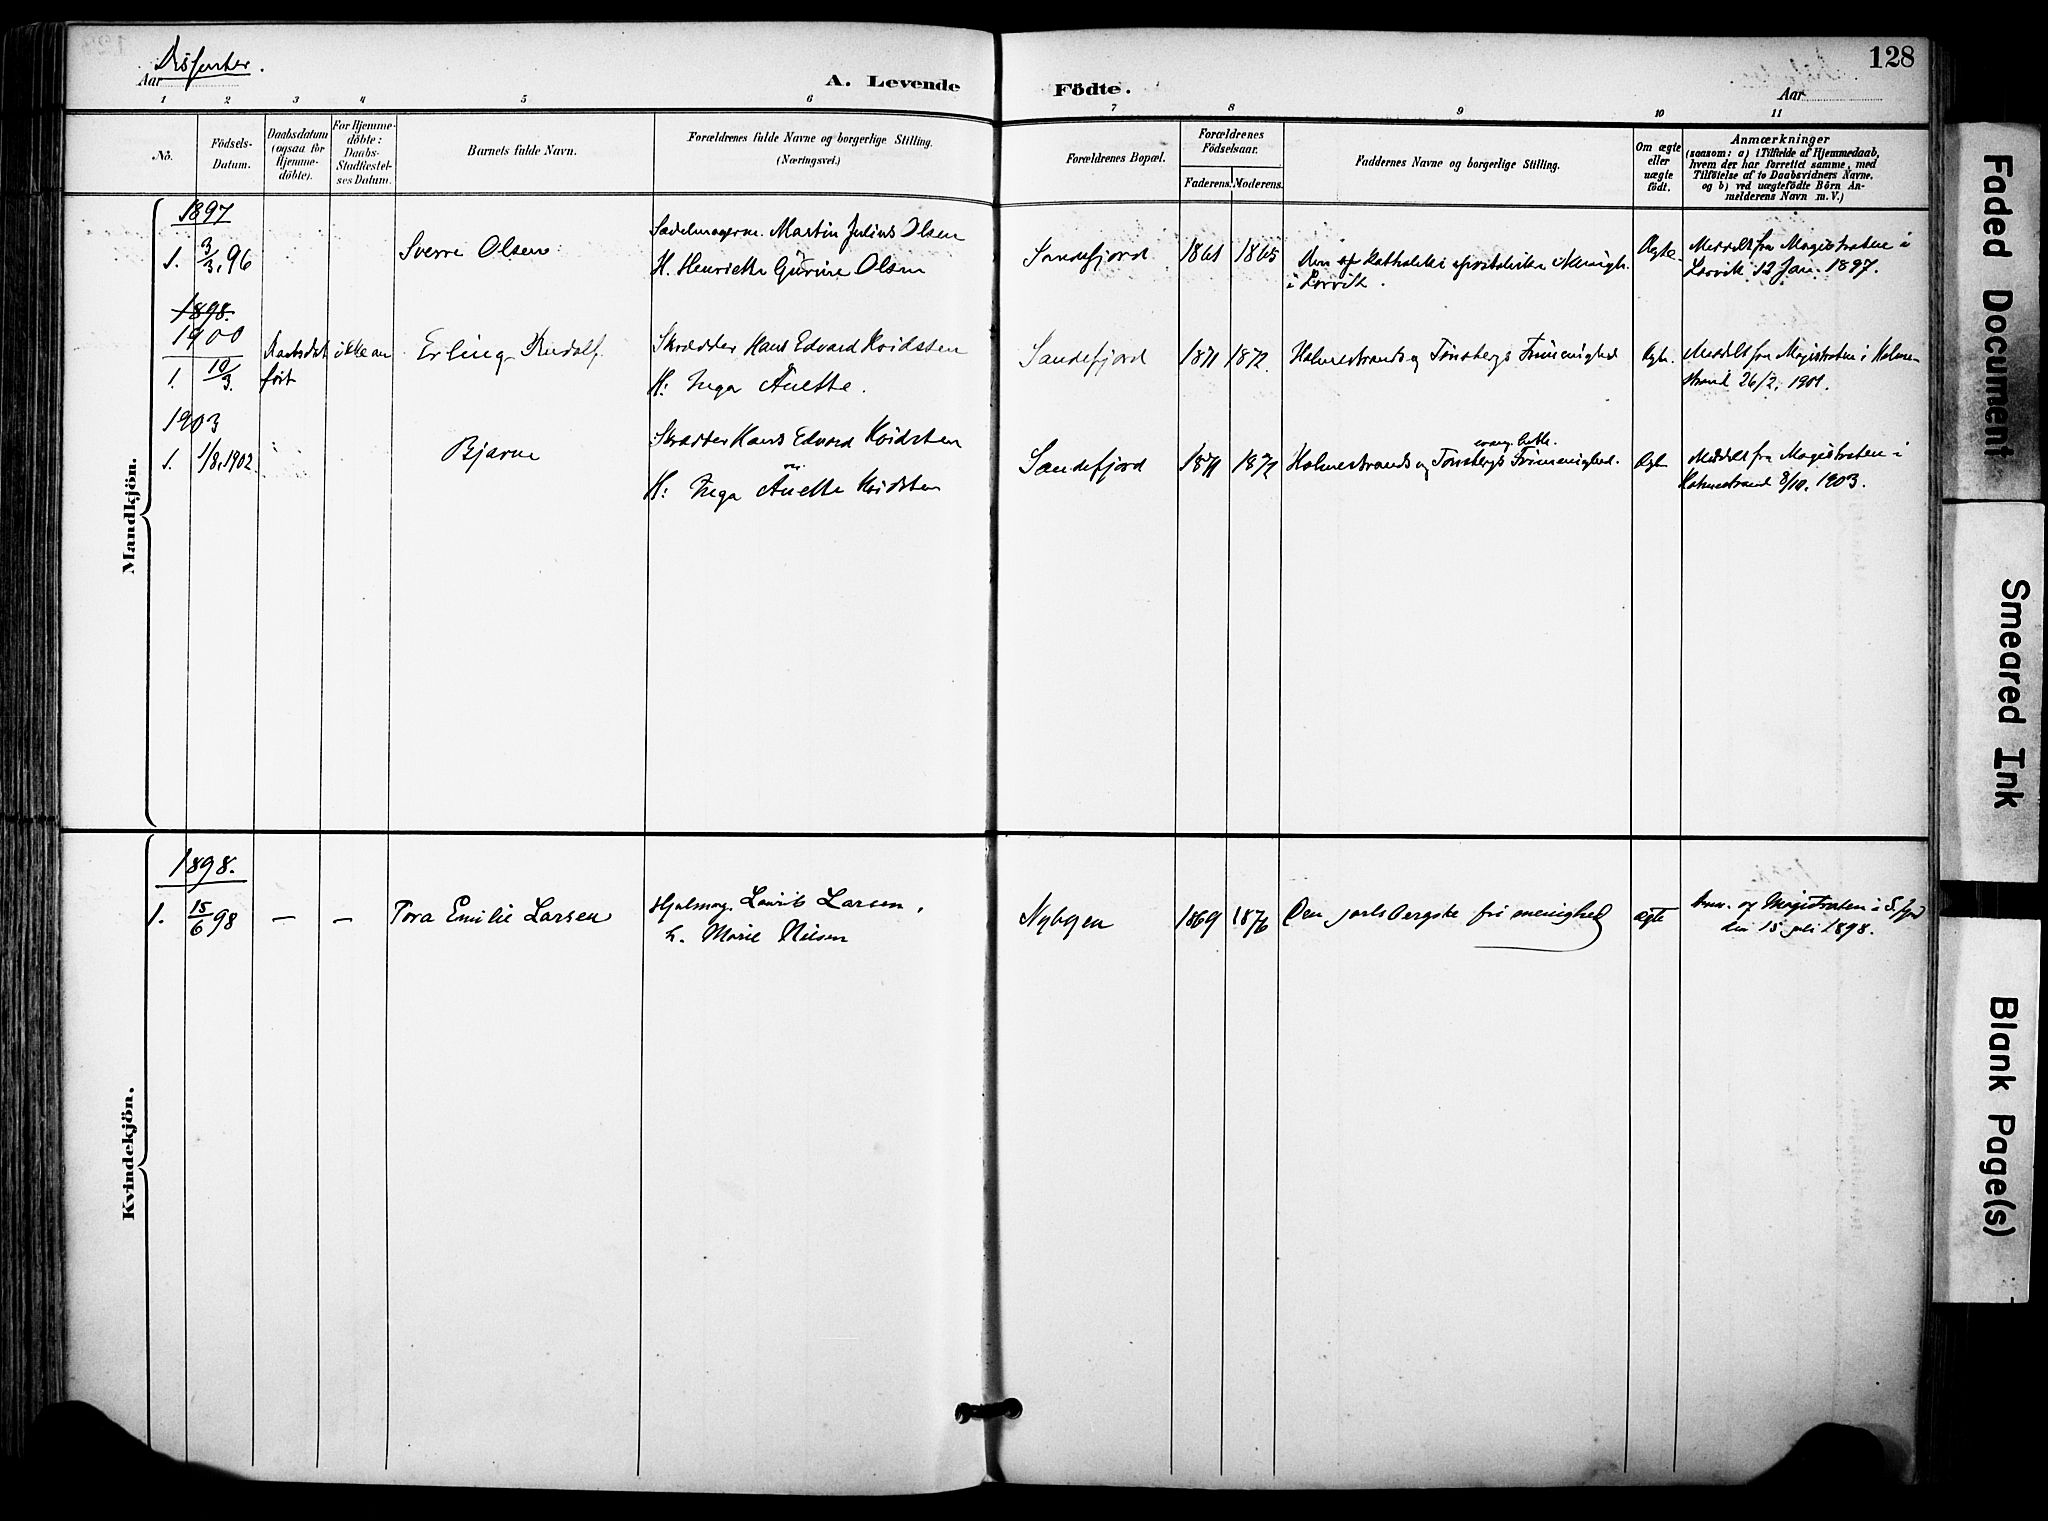 128
Dissenter.
Aar
A. Levende Födte.
Aar
1 2 3 4 5 6 7 8 9 10 11
Nô.
Födsels-
Datum.
Daabsdatum
(ogsaa för
Hjemme-
döbte).
For Hjemme-
döbte:
Daabs-
Stadfæstel-
ses Datum.
Barnets fulde Navn.
Forældrenes fulde Navne og borgerlige Stilling.
(Næringsvei.)
Forældrenes Bopæl.
Forældrenes
Födselsaar.
Faderens. Moderens.
Faddernes Navne og borgerlige Stilling.
Om ægte
eller
uægte
födt.
Anmærkninger
(saasom: a) i Tilfælde af Hjemmedaab,
hvem der har forrettet samme, med
Tilföielse af to Daabsvidners Navne,
og b) ved uægtefödte Börn An-
melderens Navn m. V.)
Mandkjön.
1897
1. 3/3, 96 Sverre Olsen
Sadelmagerm. Martin Julius Olsen
H. Henriette Gurine Olsen
Sandefjord 1861 1865
Den katholske apostoliske Menigh.
i Larvik.
Ægte
Meddelt fra Magistraten i
Larvik 12 Jan. 1897.
1898.
1900
1. 10/3. Daabsdat ikke an
ført
Erling Rudolf
Skrædder Hans Edvard Kvidsten
H: Inga Anette.
Sandefjord 1871 1872.
Holmestrands og Tønsbergs Frimenighed
Ægte.
Meddelt fra Magistraten i Holme-
strand 26/2. 1901.
1903
1. 1/8, 1902. Bjarne
Skrædder Hans Edvard Kvidsten
H: Inga Anette Kvidsten
Sandefjord 1871 1872
evang. luth.
Holmestrands og Tønsbergs Frimenighed.
Ægte
Meddelt fra Magistraten i
Holmestrand 8/10. 1903.
Kvindekjön.
1898.
1. 15/6 98 — — Tora Emilie Larsen
Hjulmag. Laurits Larsen,
h. Marie Nilsen
Nybyen 1869 1876
Den jarlsbergske frimenighed
ægte
Anm. af Magistraten i S.fjord
den 15 juli 1898.
Faded Document
Smeared Ink
Blank Page(s)